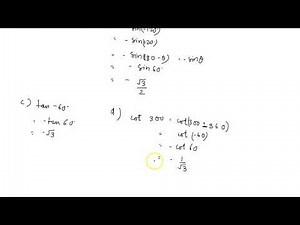 = - sin(120)
= - sin(180-θ) ∴ sinθ
= - sin 60
= - √3/2
c) tan -60
= - tan 60
= -√3
d) cot 300 = cot(300 ± 360)
= cot (-60)
= - cot 60
= - 1/√3